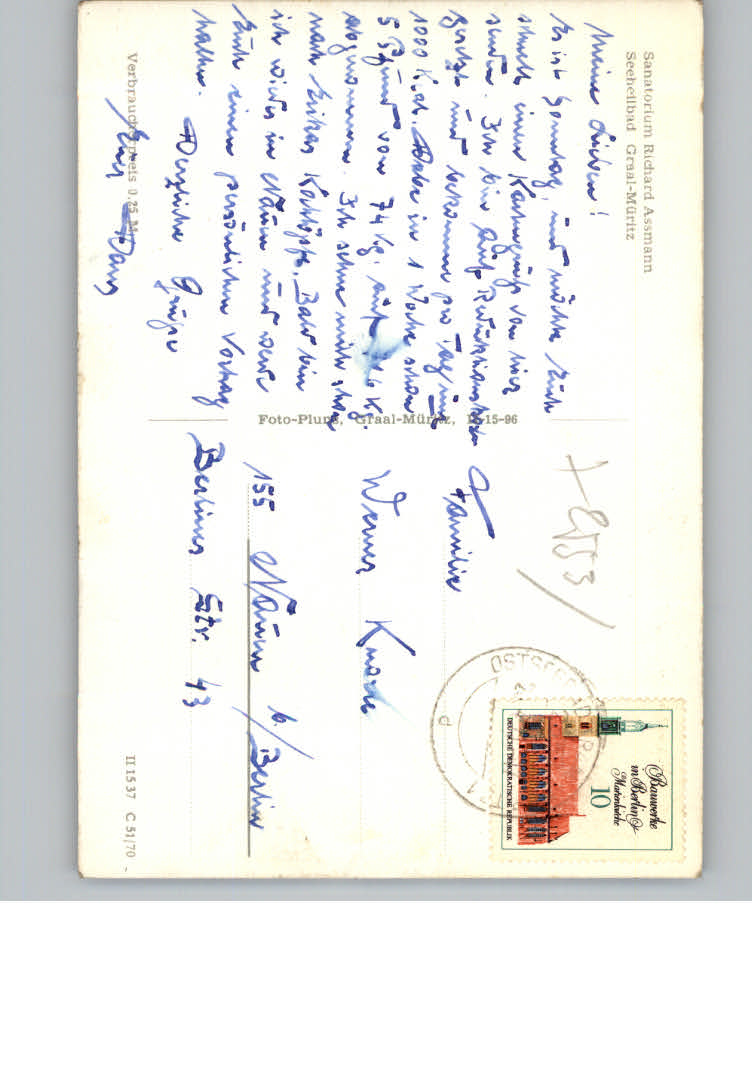 Sanatorium Richard Assmann
Seeheilbad Graal-Müritz
Meine Lieben!
Es ist Sonntag, und möchte Euch
schnell einen Kartengruß von hier
senden. Ich bin auf
gesetzt und bekomme pro Tag nur
1000 Kal. Habe in 1 Woche schon
5 Pfund von 74 kg. auf kg.
abgenommen. Ich sehne mich schon
nach Erikas . Bald bin
ich wieder in Nauen und werde
Euch einen persönlichen Vortrag
halten.
Herzliche Grüße
Euer Hans
Verbraucherpreis 0,25 M
Foto-Plura, Graal-Müritz, 15-96
Familie
Werner
155 Nauen b./Berlin
Berliner Str. 43
II 15 37 C 51/70
OSTSEEBAD
d
Bauwerke
in Berlin
Marienkirche
10
DEUTSCHE DEMOKRATISCHE REPUBLIK